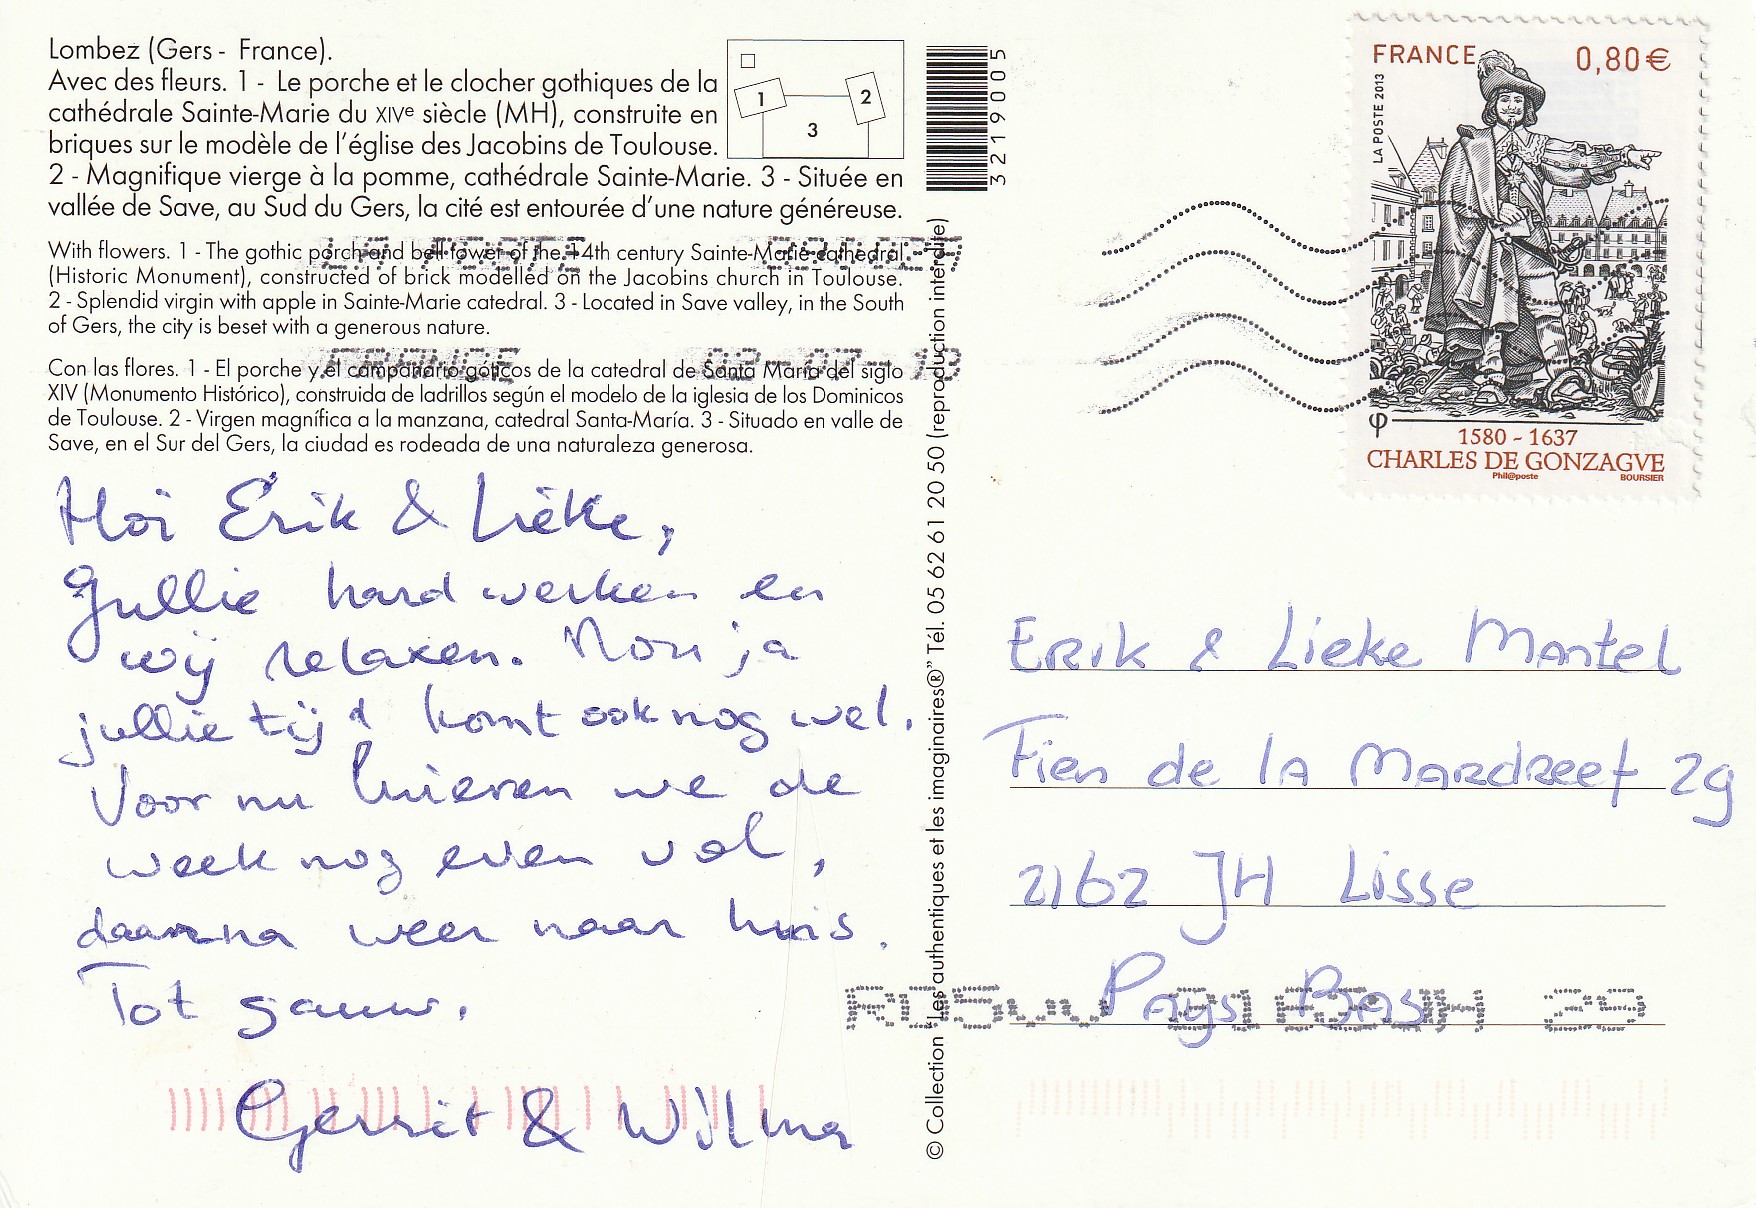 Lombez (Gers - France).
Avec des fleurs. 1 - Le porche et le clocher gothiques de la
cathédrale Sainte-Marie du XIVe siècle (MH), construite en
briques sur le modèle de l'église des Jacobins de Toulouse.
2 - Magnifique vierge à la pomme, cathédrale Sainte-Marie. 3 - Située en
vallée de Save, au Sud du Gers, la cité est entourée d'une nature généreuse.
1
2
3
With flowers. 1 - The gothic porch and bell-tower of the 14th century Sainte-Marie cathedral
(Historic Monument), constructed of brick modelled on the Jacobins church in Toulouse.
2 - Splendid virgin with apple in Sainte-Marie catedral. 3 - Located in Save valley, in the South
of Gers, the city is beset with a generous nature.
Con las flores. 1 - El porche y el campanario góticos de la catedral de Santa María del siglo
XIV (Monumento Histórico), construida de ladrillos según el modelo de la iglesia de los Dominicos
de Toulouse. 2 - Virgen magnífica a la manzana, catedral Santa-María. 3 - Situado en valle de
Save, en el Sur del Gers, la ciudad es rodeada de una naturaleza generosa.
Hoi Erik & Lieke,
Jullie hard werken en
wij relaxen. Mori ja
jullie tijd komt ook nog wel.
Voor nu luieren we de
week nog even vol,
daarna weer naar huis.
Tot gauw.
Gerrit & Wilma
3219005
© Collection "Les authentiques et les imaginaires®" Tél. 05 62 61 20 50 (reproduction interdite)
FRANCE 0,80€
LA POSTE 2013
φ
1580 - 1637
CHARLES DE GONZAGVE
Phil@poste BOURSIER
FRANCE
Erik & Lieke Mantel
Fien de la Mardreef 29
2162 JH Lisse
Pays Bas